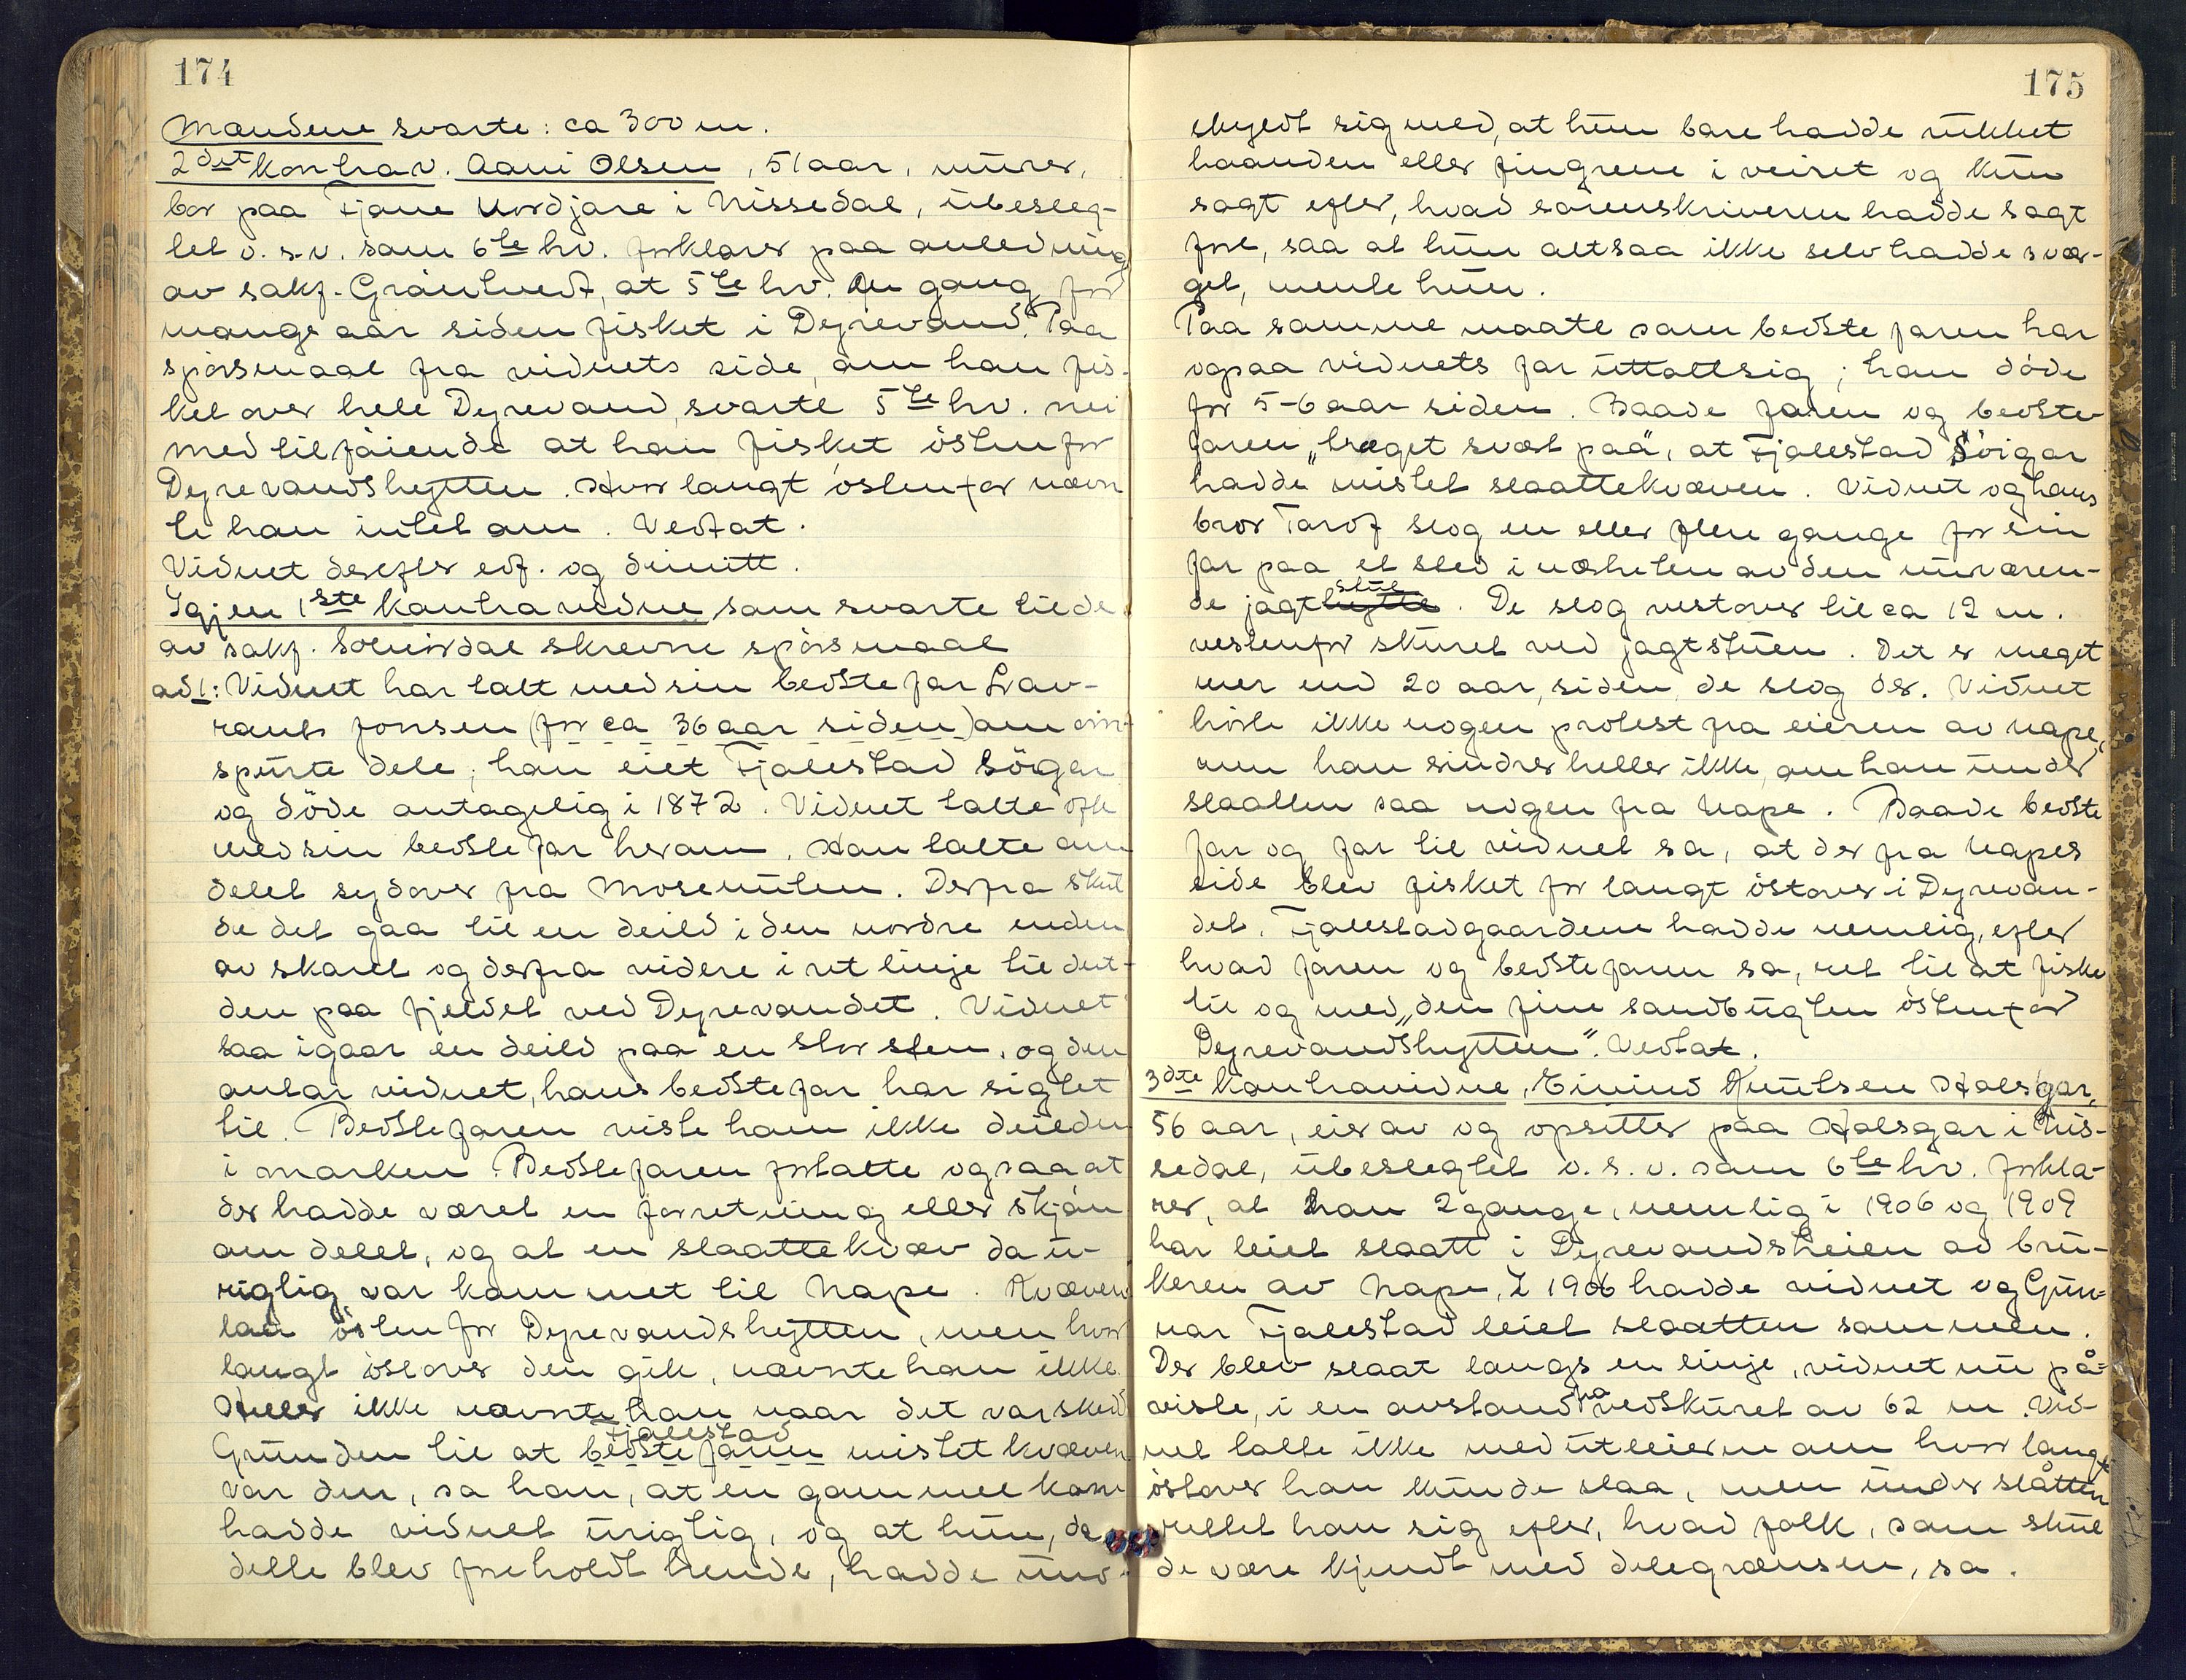 174
Mændene svarte: ca 300 m.
2det kontrav. Aani Olsen, 51 aar, murer,
bor paa Fjane Nordjare i Nissedal, ubesleg-
tet o. s. v. som 6te hv. forklarer paa anledning
av sakf. Grántvedt, at 5te hv. en gang for
mange aar siden fisket i Dyrevand. Paa
spörsmaal fra vidnets side, om han fis-
ket over hele Dyrevand, svarte 5te hv. nei
med tilföiende at han fisket östenfor
Dyrevandshytten. Hvor langt östenfor nævn
te han intet om. Vedtat.
Vidnet derefter edf. og dimitt.
Igjen 1ste kontravidne som svarte til de
av sakf. Solvirdal skrevne spörsmaal
ad 1: Vidnet har talt med sin bedstefar Lav-
rants Jonsen (for ca 36 aar siden) om om-
spurte dele; han eiet Fjalestad Sörgar
og döde antagelig i 1872. Vidnet talte ofte
med sin bedstefar herom. Han talte om
delet sydover fra Mosenuten. Derfra skul
de det gaa til en deild i den nordre enden
av skaret og derfra videre i ret linje til det-
den paa fjeldet ved Dyrevandet. Vidnet
saa igaar en deild paa en stor sten, og den
antar vidnet, hans bedstefar har sigtet
til. Bedstefaren viste ham ikke deilden
i marken. Bedstefaren fortalte ogsaa, at
der hadde været en forretning eller skjön
om delet, og at en slaattekvæv da u-
rigtig var kommet til Nape. Kvæven
laa östenfor Dyrevandshytten, men hvor
langt östover den gik, nævnte han ikke.
Heller ikke nævnte han naar det var skedd
Fjalestad
Grunden til at bedstefaren mistet kvæven
var den, sa han, at en gammel kone
hadde vidnet urigtig, og at hun, da
dette blev foreholdt hende, hadde und-
175
skyldt sig med, at hun bare hadde rukket
haanden eller fingrene i veiret og kun
sagt efter, hvad sorenskriveren hadde sagt
fore, saa at hun altsaa ikke selv hadde svær-
get, mente hun.
Paa samme maate som bedstefaren har
ogsaa vidnets far uttalt sig; han döde
for 5-6 aar siden. Baade faren og bedste-
faren "træget svært paa", at Fjalestad Söigar
hadde mistet slaattekvæven. Vidnet og hans
bror Tarof slog en eller flere gange for sin
far paa et sted i nærheten av den nuværen-
stue
de jagthytte. De slog vestover til ca 12 m.
vestenfor skuret ved jagtstuen. Det er meget
mer end 20 aar, siden de slog der. Vidnet
hörte ikke nogen protest fra eieren av Nape,
men han sindrer heller ikke, om han under
slaatten saa nogen fra Nape. Baade bedste
far og far til vidnet sa, at der fra Napes
side blev fisket for langt östover i Dyrevan-
det. Fjalestadgaardene hadde nemlig, efter
hvad faren og bedstefaren sa, ret til at fiske
til og med "den fine sandbugten östenfor
Dyrevandshytten". Vedtat.
3dte kontravidne, Eivind Knutsen Halsgar,
56 aar, eier av og opsitter paa Halsgar i Nis-
sedal, ubeslegtet o. s. v. som 6te hv. forkla-
rer, at han 2 gange, nemlig i 1906 og 1909
har leiet slaatt i Dyrevandsheien av bru-
keren av Nape. I 1906 hadde vidnet og Gun-
nar Fjalestad leiet slaatten sammen.
Der blev slaat langs en linje, vidnet nu på-
fra
viste, i en avstand vedskuret av 62 m. Vid-
net talte ikke med utleieren om hvor langt
östover han kunde slaa, men under slåtten
rettet han sig efter, hvad folk, som skul
de være kjendt med delegrænsen, sa.